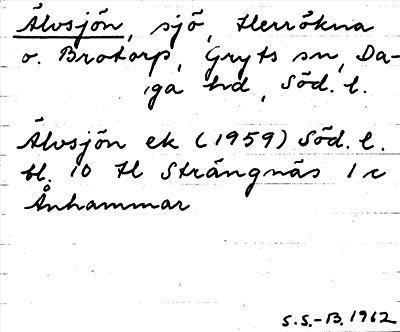 Älvsjön, sjö, Herrökna
o. Brotorp, Gryts sn, Da-
ga hd, Söd. l.
Älvsjön ek (1959) Söd. l.
bl. 10 H Strängnäs 1 c
Ånhammar
S.S.-B. 1962